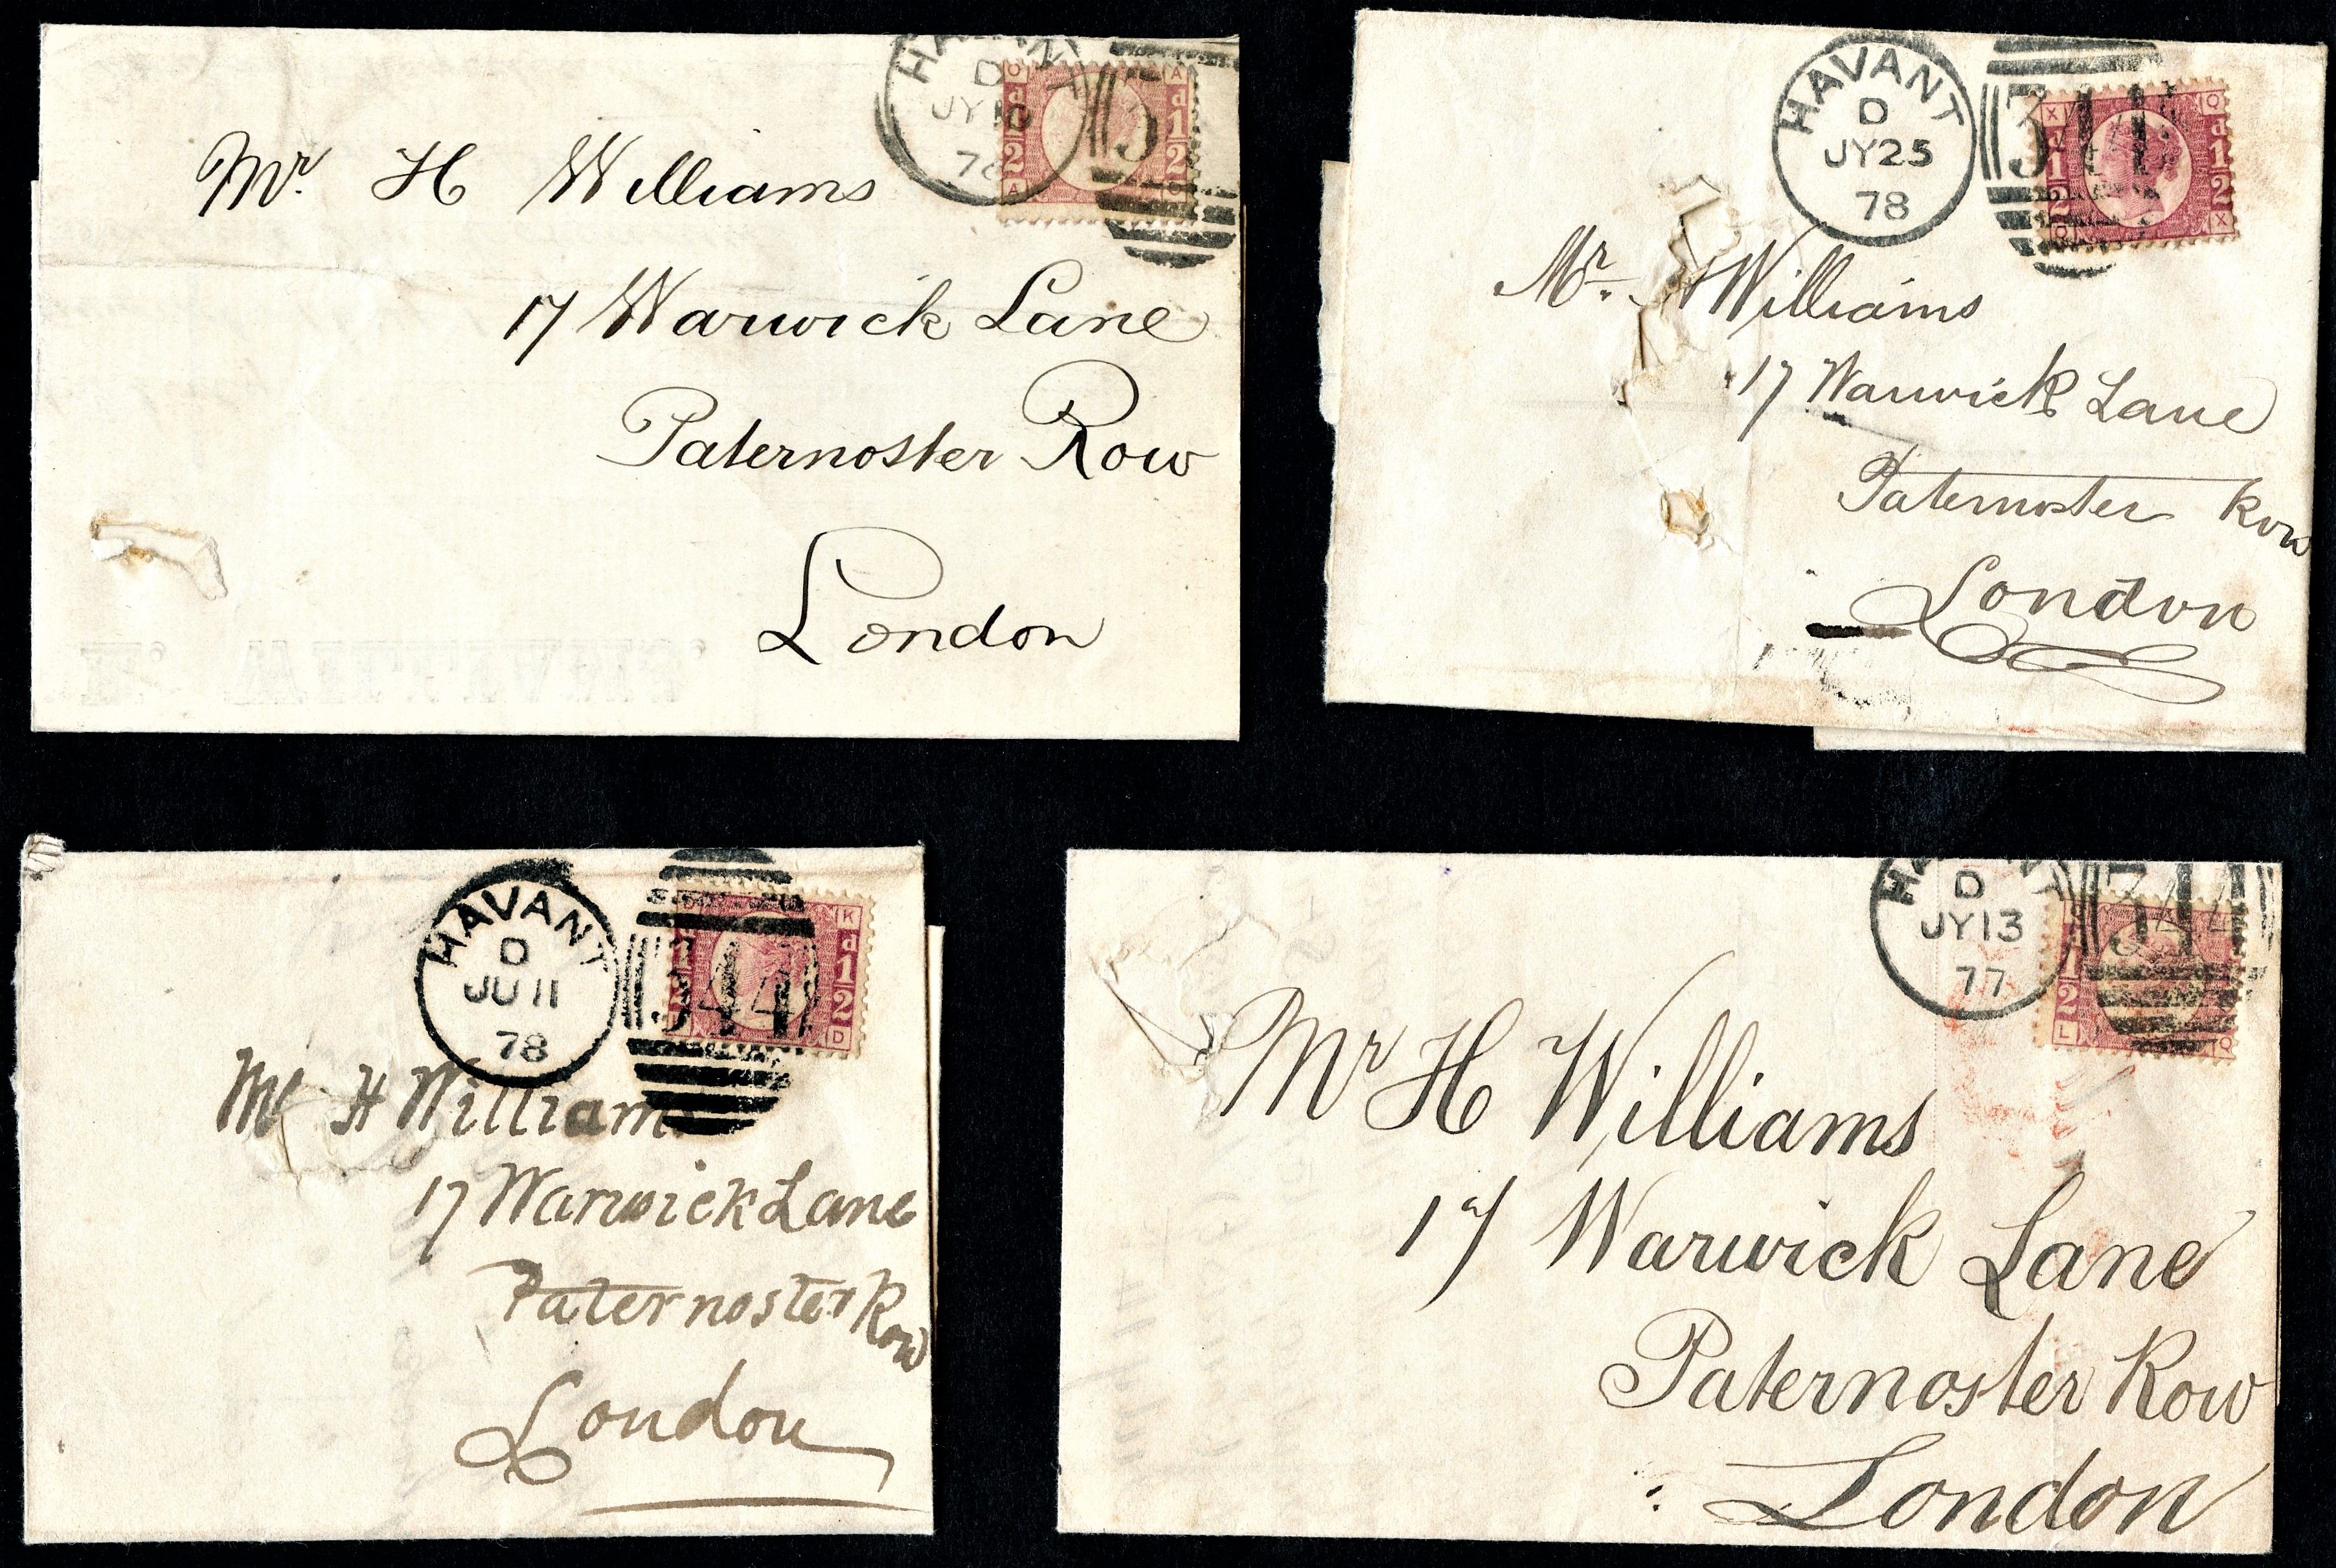 HAVANT
D
JY 1
O A
d1 d1
2 2
A O
Mr. H Williams
17 Warwick Lane
Paternoster Row
London
HAVANT
D
JY25
78
344
X Q
d1
2
Q X
Mr. H Williams
17 Warwick Lane
Paternoster Row
London
HAVANT
D
JU 11
78
344
K
d1
2
D
Mr H Williams
17 Warwick Lane
Paternoster Row
London
HAVANT
D
JY13
77
344
1
2
L Q
Mr H Williams
17 Warwick Lane
Paternoster Row
London